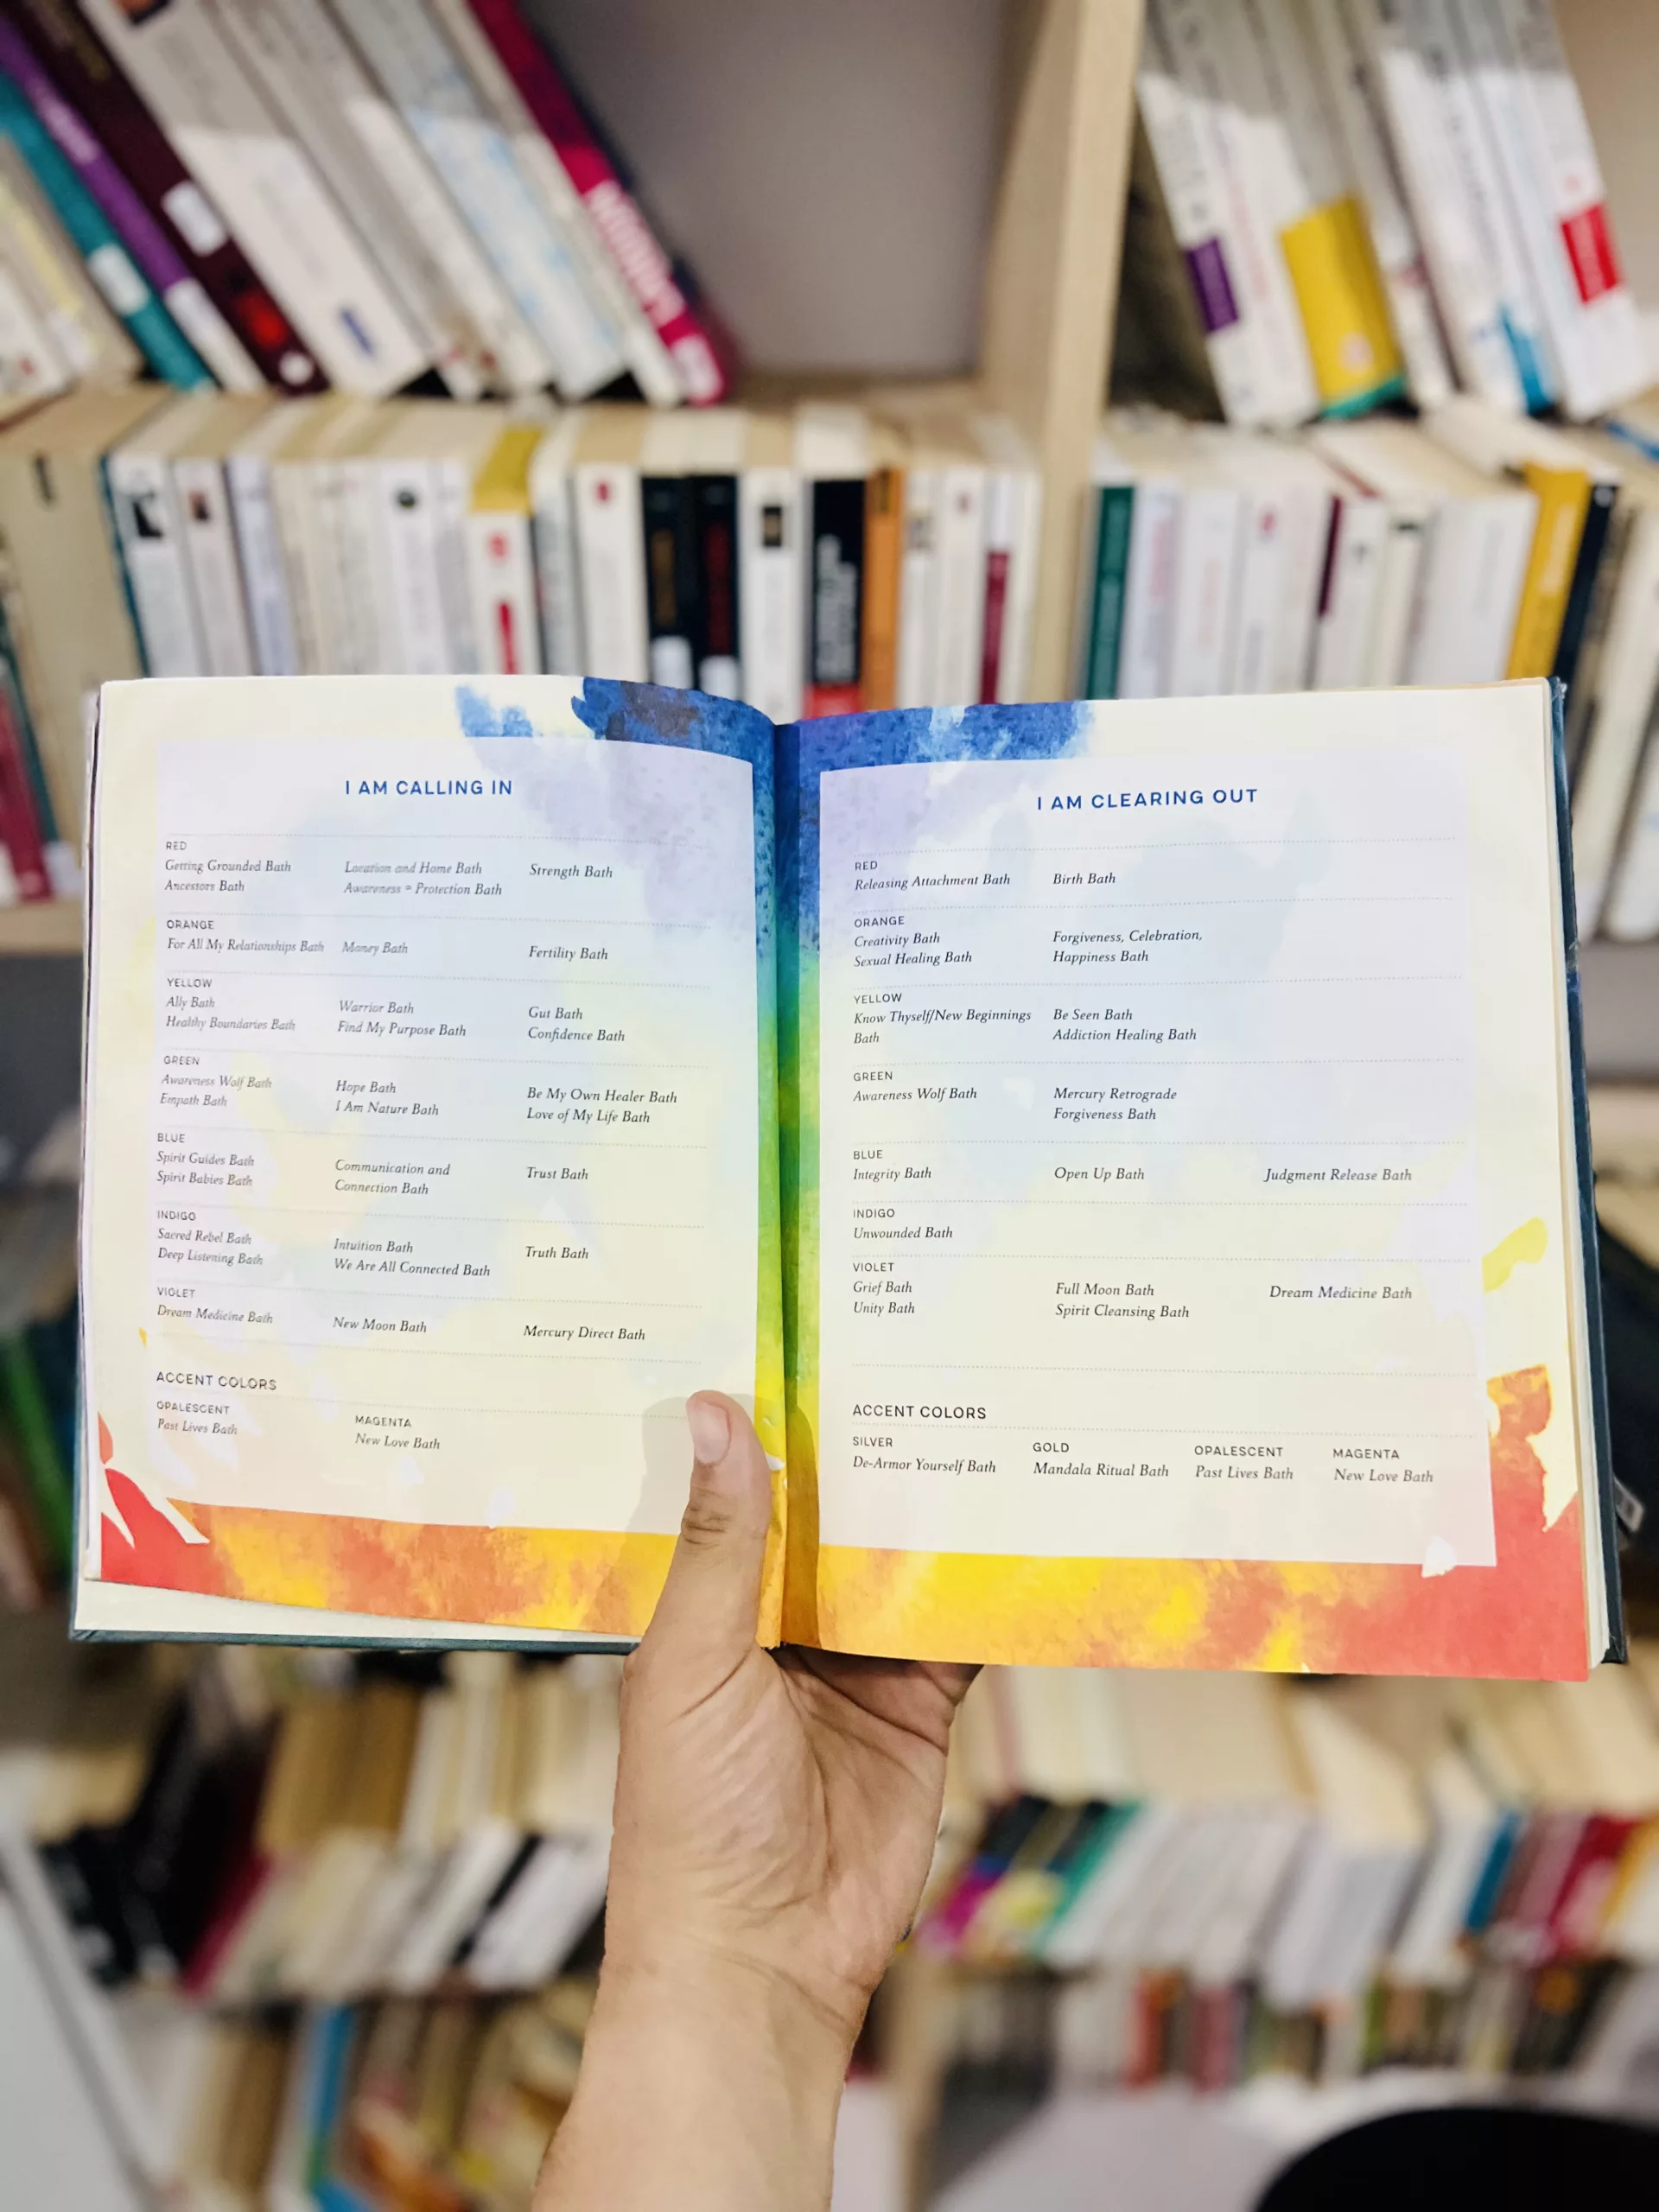 I AM CALLING IN
RED
Getting Grounded Bath
Ancestors Bath
Location and Home Bath
Awareness + Protection Bath
Strength Bath
ORANGE
For All My Relationships Bath
Money Bath
Fertility Bath
YELLOW
Ally Bath
Healthy Boundaries Bath
Warrior Bath
Find My Purpose Bath
Gut Bath
Confidence Bath
GREEN
Awareness Wolf Bath
Empath Bath
Hope Bath
I Am Nature Bath
Be My Own Healer Bath
Love of My Life Bath
BLUE
Spirit Guides Bath
Spirit Babies Bath
Communication and
Connection Bath
Trust Bath
INDIGO
Sacred Rebel Bath
Deep Listening Bath
Intuition Bath
We Are All Connected Bath
Truth Bath
VIOLET
Dream Medicine Bath
New Moon Bath
Mercury Direct Bath
ACCENT COLORS
OPALESCENT
Past Lives Bath
MAGENTA
New Love Bath
I AM CLEARING OUT
RED
Releasing Attachment Bath
Birth Bath
ORANGE
Creativity Bath
Sexual Healing Bath
Forgiveness, Celebration,
Happiness Bath
YELLOW
Know Thyself/New Beginnings
Bath
Be Seen Bath
Addiction Healing Bath
GREEN
Awareness Wolf Bath
Mercury Retrograde
Forgiveness Bath
BLUE
Integrity Bath
Open Up Bath
Judgment Release Bath
INDIGO
Unwounded Bath
VIOLET
Grief Bath
Unity Bath
Full Moon Bath
Spirit Cleansing Bath
Dream Medicine Bath
ACCENT COLORS
SILVER
De-Armor Yourself Bath
GOLD
Mandala Ritual Bath
OPALESCENT
Past Lives Bath
MAGENTA
New Love Bath